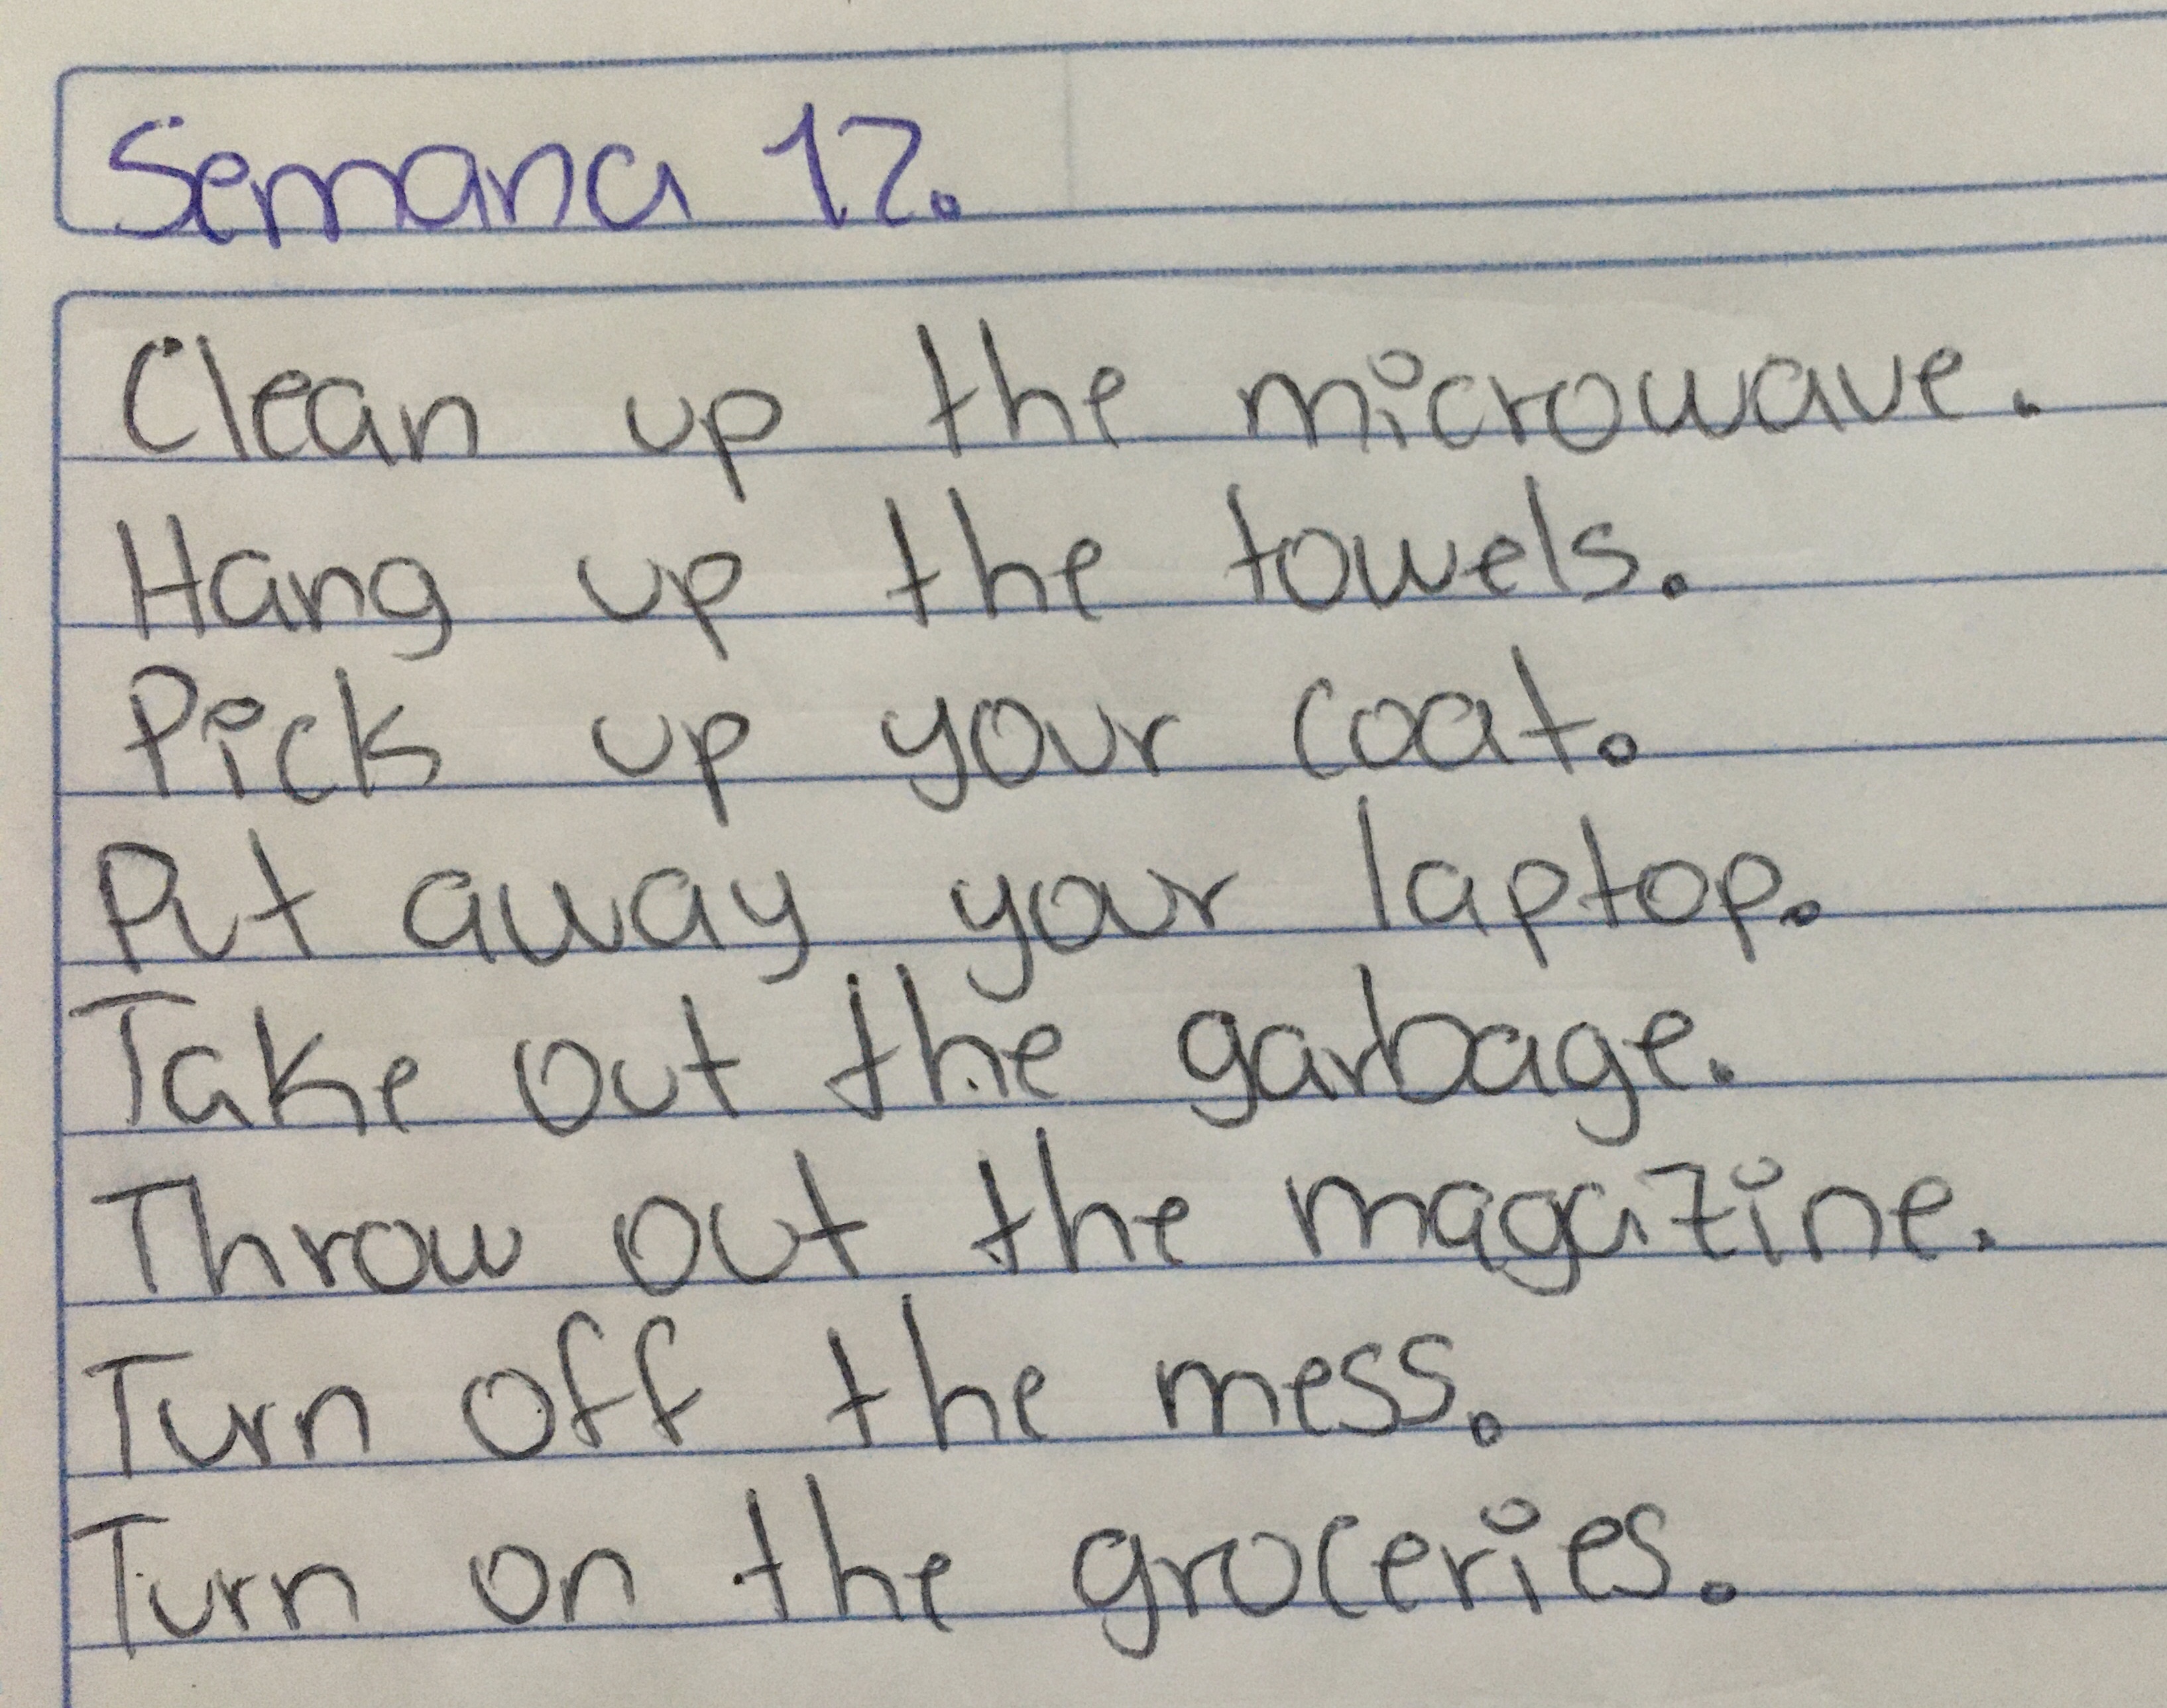 Semana 12.
Clean up the microwave.
Hang up the towels.
Pick up your coat.
Put away your laptop.
Take out the garbage.
Throw out the magazine.
Turn off the mess.
Turn on the groceries.